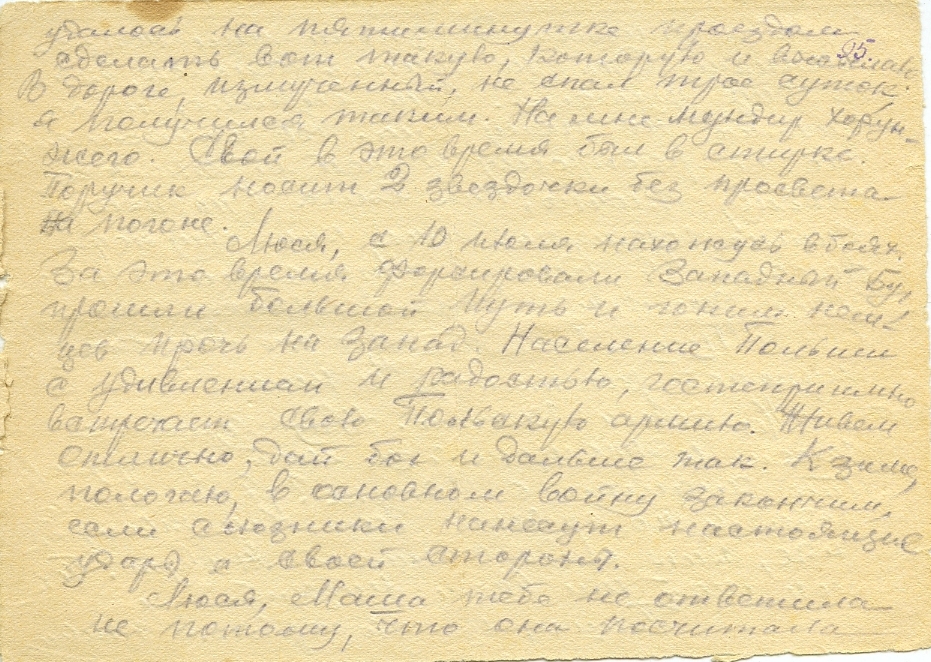 удалось на пятиминутке проездом
95.
сделать вот такую, которую и высылаю
В дороге, измученный, не спал трое суток
и получился таким. На мне мундир хорун-
жего. Свой в это время был в стирке.
Поручик носит 2 звездочки без просвета
на погоне.
Люся, с 10 июля нахожусь в боях.
За это время форсировали Западный Буг,
прошли большой путь и гоним нем-
цев прочь на Запад. Население Польши
с удивлением и радостью, гостеприимно
встречает свою Польскую армию. Живем
отлично, дай бог и дальше так. К зиме,
пологаю, в основном войну закончим,
если союзники нанесут настоящие
удары с своей стороны.
Люся, Маша тебе не ответила
не потому, что она посчитала